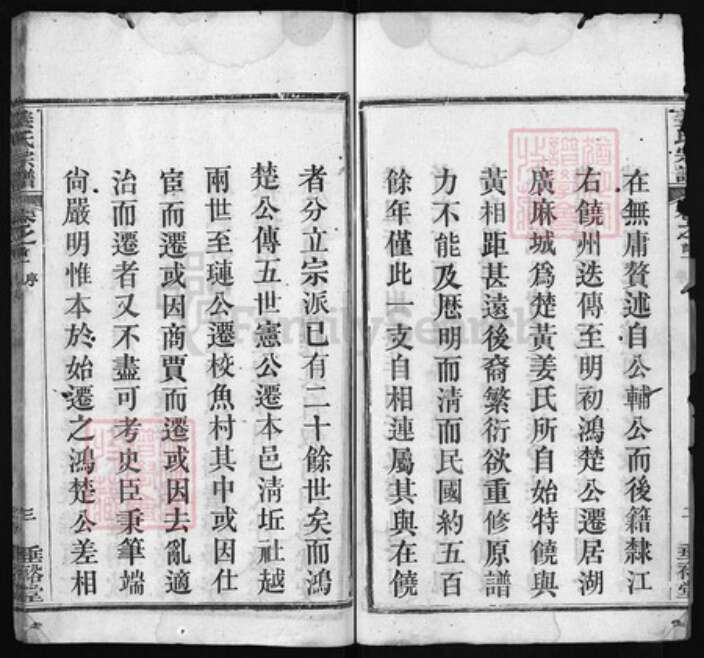 在無庸贅述自公輔公而後籍隸江
右饒州迭傳至明初鴻楚公遷居湖
廣麻城爲楚黃姜氏所自始特饒與
黃相距甚遠後裔繁衍欲重修原譜
力不能及歴明而淸而民國約五百
餘年僅此一支自相連屬其與在饒
者分立宗派已有二十餘世矣而鴻
楚公傳五世憲公遷本邑淸坵社越
兩世至璉公遷校魚村其中或因仕
宦而遷或因商賈而遷或因去亂適
治而遷者又不盡可考史臣秉筆端
尙嚴明惟本於始遷之鴻楚公差相
姜氏宗譜
卷之首
序
三
垂裕堂
FamilySearch